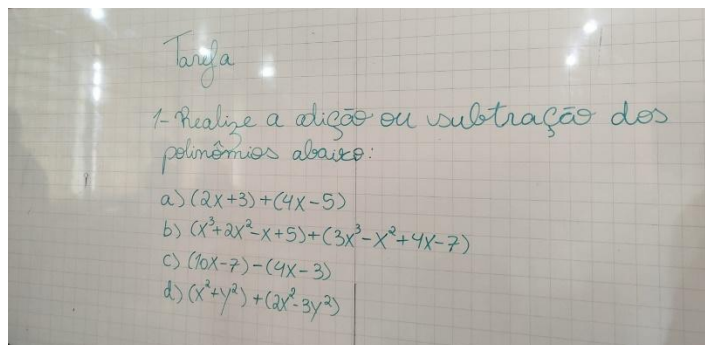 Tarefa
1- Realize a adição ou subtração dos
polinômios abaixo:
a) (2x+3)+(4x-5)
b) (x³+2x²-x+5)+(3x³-x²+4x-7)
c) (10x-7)-(4x-3)
d) (x²+y²)+(2x²-3y²)